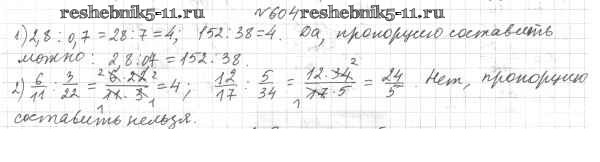 reshebnik5-11.ru №604 reshebnik5-11.ru
1) 2,8 : 0,7 = 28 : 7 = 4; 152 : 38 = 4. Да, пропорцию составить
можно: 2,8 : 0,7 = 152 : 38.
2) 6/11 : 3/22 = 6·22/11·3 = 4; 12/17 : 5/34 = 12·34/17·5 = 24/5. Нет, пропорцию
составить нельзя.